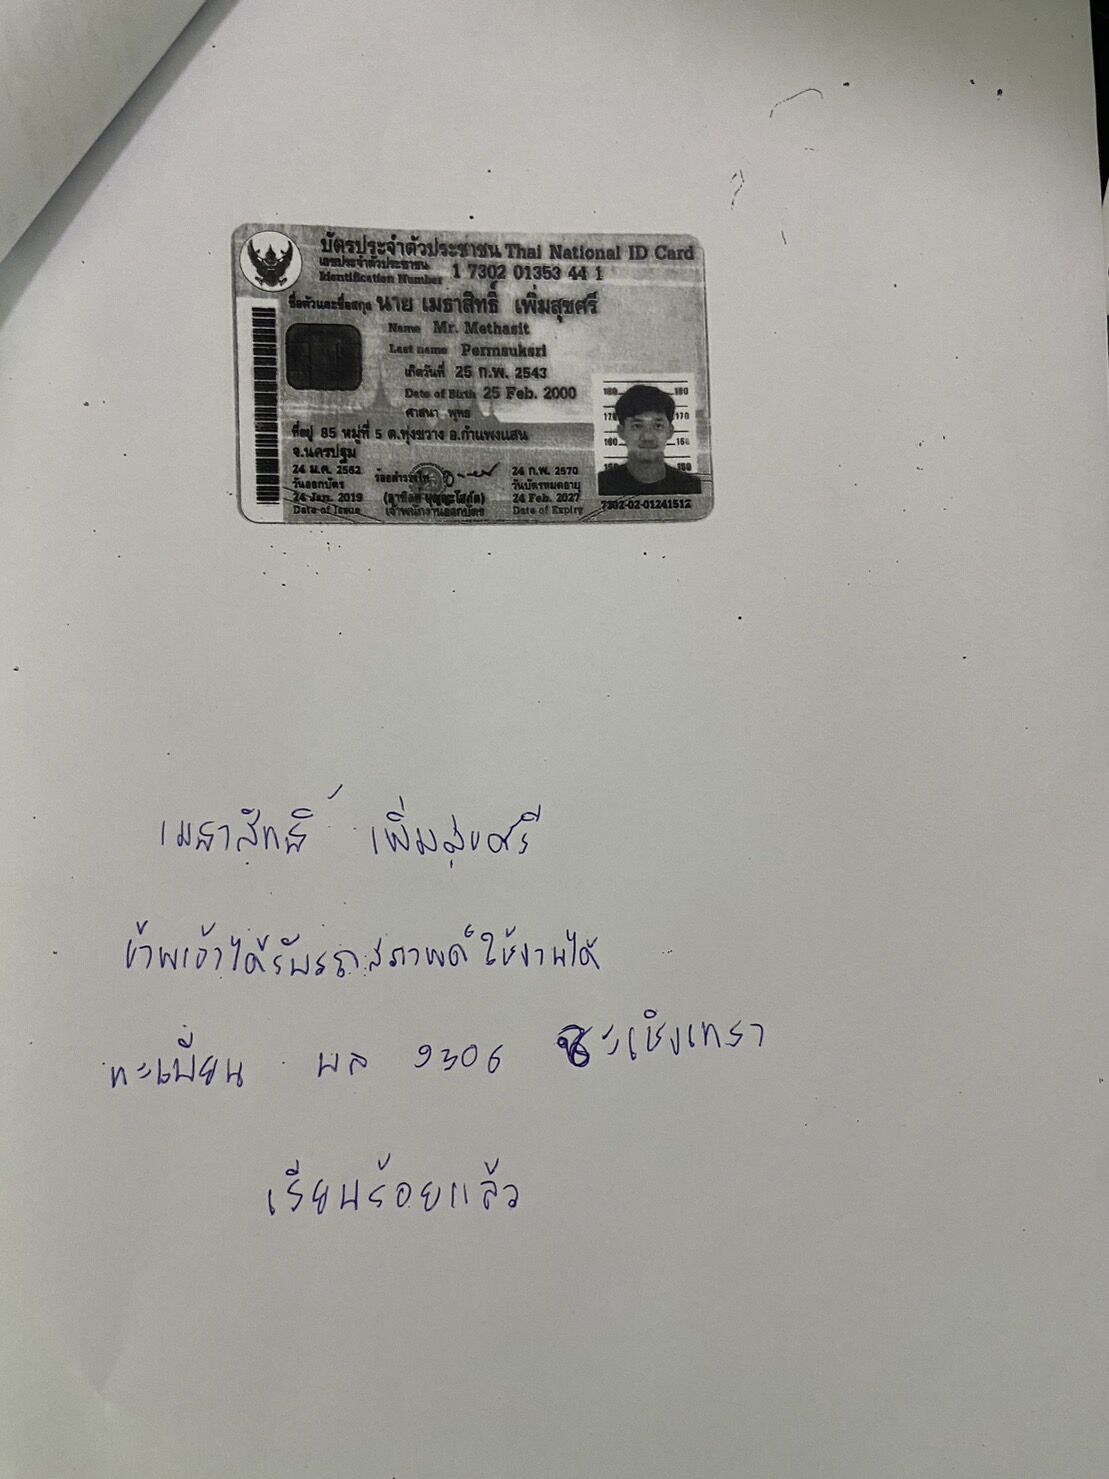 บัตรประจำตัวประชาชน Thai National ID Card
เลขประจำตัวประชาชน
Identification Number 1 7302 01353 44 1
ชื่อตัวและชื่อสกุล นาย เมธาสิทธิ์ เพิ่มสุขศรี
Name Mr. Methasit
Last name Permsuksri
เกิดวันที่ 25 ก.พ. 2543
Date of Birth 25 Feb. 2000
ศาสนา พุทธ
ที่อยู่ 85 หมู่ที่ 5 ต.ทุ่งขวาง อ.กำแพงแสน
จ.นครปฐม
24 ม.ค. 2562
วันออกบัตร
24 Jan. 2019
Date of Issue
ร้อยตำรวจโท
เจ้าพนักงานออกบัตร
24 ก.พ. 2570
วันบัตรหมดอายุ
24 Feb. 2027
Date of Expiry
180 180
170 170
160 160
150 150
7302-02-01241512
เมธาสิทธิ์ เพิ่มสุขศรี
ข้าพเจ้าได้รับรถสภาพดี ใช้งานได้
ทะเบียน พล 9306 ฉะเชิงเทรา
เรียบร้อยแล้ว